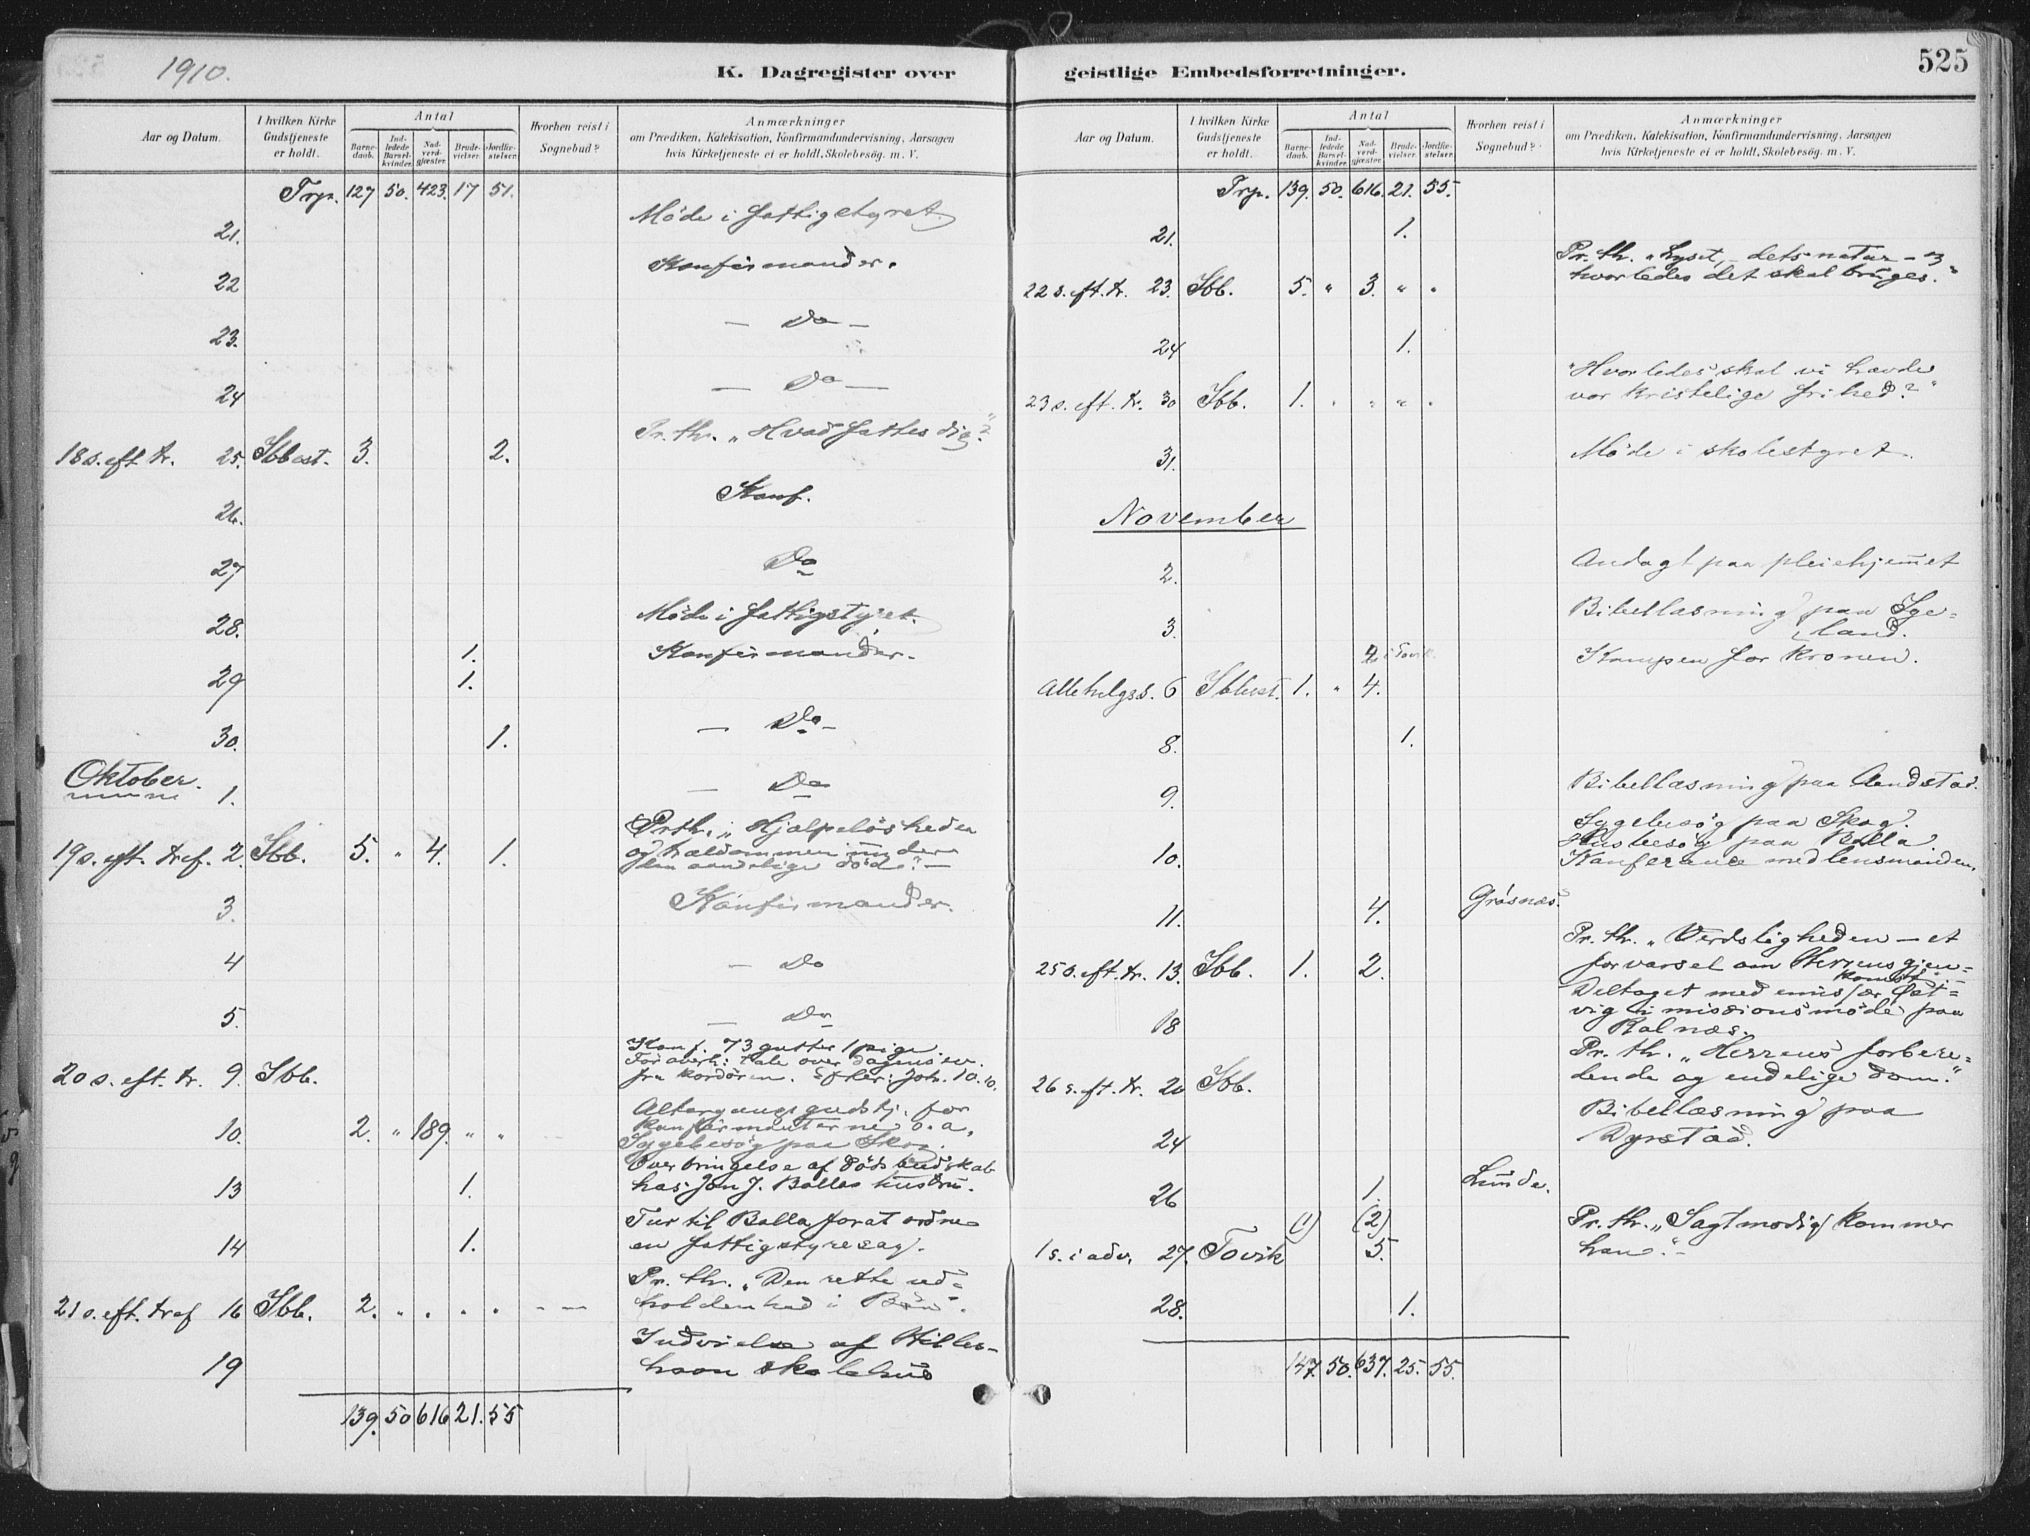 1910.
K. Dagregister over
Aar og Datum.
I hvilken Kirke Gudstjeneste er holdt.
Antal
Barnedaab.
Indledede Barselkvinder.
Nadverdgjæster.
Brudevielser.
Jordfæstelser.
Hvorhen reist i Sognebud?
Anmærkninger
om Prædiken, Katekisation, Konfirmandundervisning, Aarsagen
hvis Kirketjeneste ei er holdt, Skolebesøg. m. V.
Trp. 127 50. 423. 17 51.
21. Møde i fattigstyret.
22 Konfirmander.
23. — Do —
24 — Do —
18 s. eft tr. 25. Ibbest. 3. 2. Pr. th. „Hvad fattes dig?"
26. Konf.
27 Do
28. Møde i fattigstyret.
1. Konfirmander.
29 1.
30. 1. — Do —
Oktober.
1. — Do
19 s. eft. tref. 2. Ibb. 5. " 4. 1. Pr th. „Hjælpeløsheden
og trældommen under
den aandelige død." —
3. Konfirmander.
4 — Do
5. — Do
20 s. eft. tr. 9. Ibb. Konf. 73 gutter 1 pige
For overh: tale over dagens ev.
fra kordøren. Efter: Joh. 10. 10.
10. 2. " 189. " " Altergangsgudstj. for
konfirmanterne o. a.
Sygebesøg paa Skog.
13 1. Overbringelse af dødsbudskab
hos Jon J. Ballas hustru.
14 1. Tur til Balla forat ordne
en fattigstyresag.
21 s. eft. tref 16 Ibb. 2. " " " " Pr. th. „Den rette ud-
holdenhed i Bøn".
19 Indvielse af Hilles-
havn skolehus
139. 50 616 21. 55
geistlige Embedsforretninger.
525
Aar og Datum.
I hvilken Kirke Gudstjeneste er holdt.
Antal
Barnedaab.
Indledede Barselkvinder.
Nadverdgjæster.
Brudevielser.
Jordfæstelser.
Hvorhen reist i Sognebud?
Anmærkninger
om Prædiken, Katekisation, Konfirmandundervisning, Aarsagen
hvis Kirketjeneste ei er holdt, Skolebesøg. m. V.
Trp. 139. 50. 616. 21. 55.
21. 1.
22 s. eft. tr. 23. Ibb. 5. " 3. " " Pr. th. „Lyset, – dets natur – og
hvorledes det skal bruges."
24 1.
23 s. eft. tr. 30 Ibb. 1. " " " " „Hvorledes skal vi hævde
vor kristelige frihed?"
31. Møde i skolestyret.
November
2. Andagt paa pleiehjemmet
3. Bibellæsning paa Ige-
land.
2 i Tovik. Kampen for kronen.
Allehelgss. 6 Ibbest. 1. " 4.
8. 1.
9. Bibellæsning paa Aandstad.
Sygebesøg paa Skog.
10. Husbesøg paa Balla.
Konferance med lensmanden.
11. 4. Grøsnæs.
25 s. eft. tr. 13. Ibb. 1. 2. Pr. th. „Verdsligheden — et
forvarsel om Herrens gjen-
komst."
18 Deltaget med emissær Øst-
vig i missionsmøde paa
Kalnæs.
26 s. eft. tr. 20 Ibb. Pr. th. „Herrens forbere-
dende og endelige dom."
24 Bibellæsning paa
Dyrstad.
26 1. Lunde.
(1) (2)
1 s. i adv. 27. Tovik 5. Pr. th. „Sagtmodig kommer
han."
28. 1.
147. 50. 637. 25. 55.